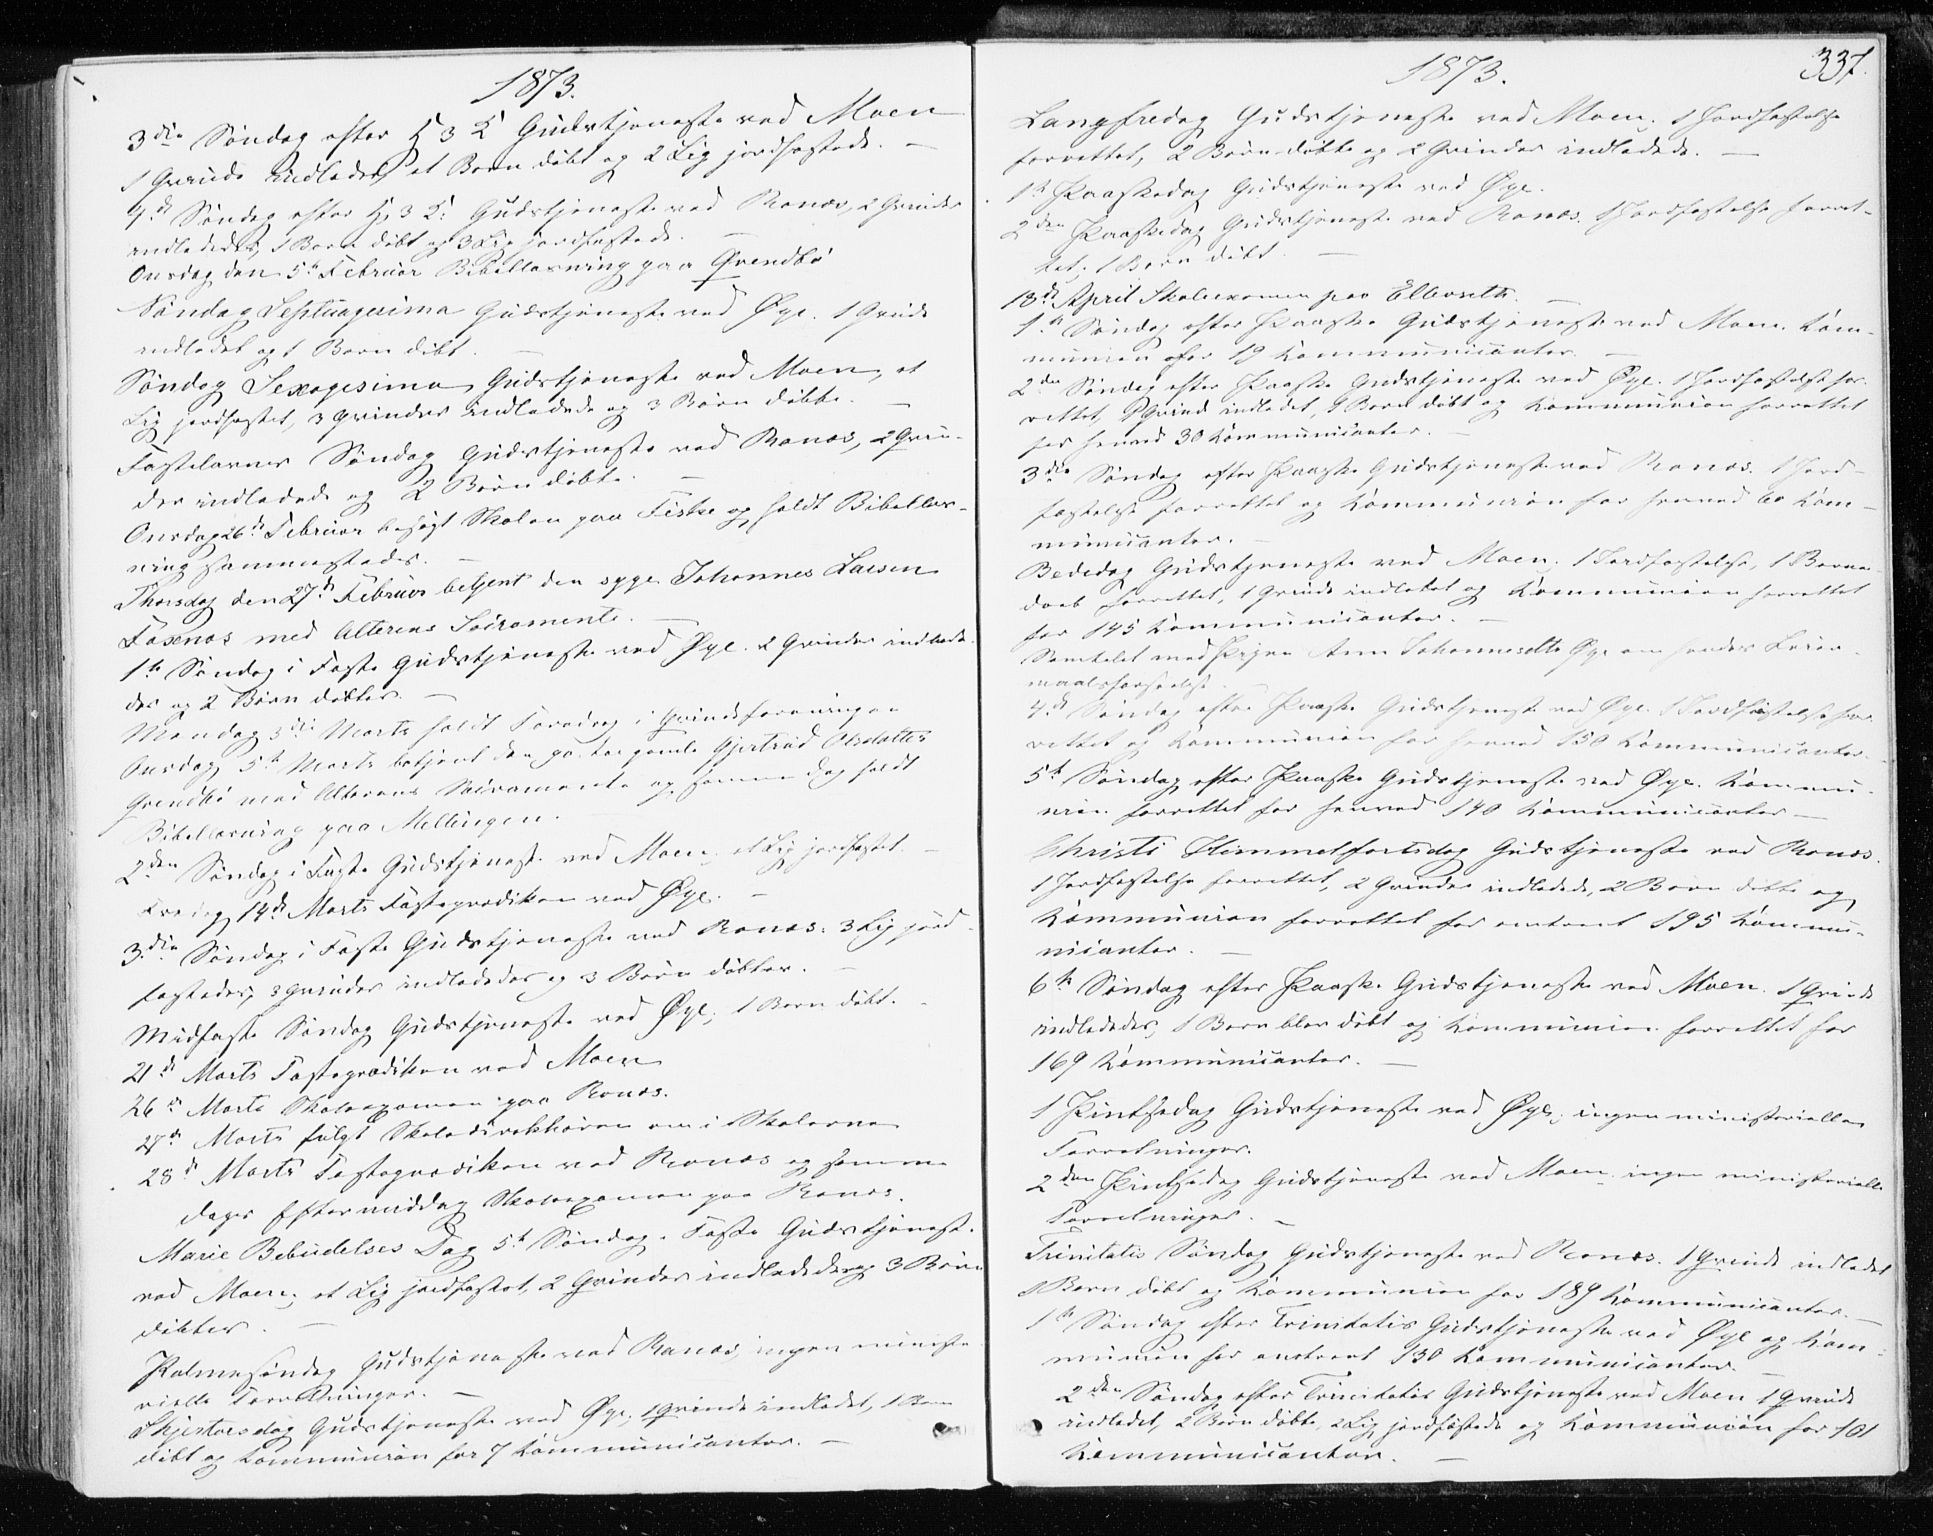 1873.
3die Søndag efter H 3 K Gudstjeneste ved Moen
1 Qvinde indledet, et Barn døbt og 2 Lig jordfæstede. —
4de Søndag efter H, 3 K: Gudstjeneste ved Ranæs, 2 Qvinder
indledede, 1 Barn døbt og 3 Lig jordfæstede. —
Onsdag den 5te Februar Bibellæsning paa Qvendbø
Søndag Septuagesima Gudstjeneste ved Øye. 1 Qvinde
indledet og 1 Barn døbt. —
Søndag Sexagesima Gudstjeneste ved Moen, et
Lig jordfæstet, 3 Qvinder indledede og 3 Børn døbte. —
Fastelavns Søndag Gudstjeneste ved Ranæs, 2 Qvin-
der indledede og 2 Børn døbte. —
Onsdag 26de Februar besøgt Skolen paa Fiske og holdt Bibellæs-
ning sammesteds. —
Thorsdag den 27de Februar betjent den syge Johannes Larsen
Foxnæs med Alterens Sacramente. —
1ste Søndag i Faste Gudstjeneste ved Øye. 2 Qvinder indlede-
des og 2 Børn døbtes. —
Mandag 3die Marts holdt Foredrag i Qvindeforeningen
Onsdag 5te Marts betjent den gamle Gjertrud Olsdatter
Qvendbø med Alterens Sacramente og samme Dag holdt
Bibellæsning paa Mellingen. —
2den Søndag i Faste Gudstjeneste ved Moen, et Lig jordfæstet. —
Fredag 14de Marts Fasteprædiken ved Øye. —
3die Søndag i Faste Gudstjeneste ved Ranæs. 3 Lig jord-
fæstedes, 3 Qvinder indlededes og 3 Børn døbtes. —
Midfaste Søndag Gudstjeneste ved Øye, 1 Barn døbt. —
21de Marts Fasteprædiken ved Moen
26de Marts Skoleexamen paa Ranæs.
27de Marts fulgt Skoledirektøren om i Skolerne
28de Marts Fasteprædiken ved Ranæs og samme
Dags Eftermiddag Skoleexamen paa Ranæs.
Marie Bebudelses Dag 5te Søndag i Faste Gudstjeneste
ved Moen, et Lig jordfæstet, 2 Qvinder indledede og 3 Børn
døbtes. —
Palmesøndag Gudstjeneste ved Ranæs, ingen ministe-
rielle Forretninger. —
Skjertorsdag Gudstjeneste ved Øye, 1 Qvinde indledet, 1 Barn
døbt og Kommunion for 7 Kommunicanter. —
1873.
337.
Langfredag Gudstjeneste ved Moen. 1 Jordfæstelse
forrettet, 2 Børn døbte og 2 Qvinder indledede. —
1ste Paaskedag Gudstjeneste ved Øye.
2den Paaskedag Gudstjeneste ved Ranæs. 1 Jordfæstelse forret-
tet, 1 Barn døbt. —
18de April Skoleexamen paa Elleseth. —
1ste Søndag efter Paaske Gudstjeneste ved Moen. Kom-
munion for 19 Kommunicanter. —
2den Søndag efter Paaske Gudstjeneste ved Øye. 1 Jordfæstelse for-
rettet, 1 Qvinde indledet, 1 Barn døbt og Kommunion forrettet
for henved 30 Kommunicanter. —
3die Søndag efter Paaske Gudstjeneste ved Ranæs. 1 Jord-
fæstelse forrettet og Kommunion for henved 60 Kom-
municanter. —
Bededag Gudstjeneste ved Moen. 1 Jordfæstelse, 1 Barne-
daab forrettet, 1 Qvinde indledet og Kommunion forrettet
for 145 Kommunicanter. —
Samtalet med Pigen Ane Johannesdtr Øye om hendes Leier-
maalsforseelse. —
4de Søndag efter Paaske Gudstjeneste ved Øye. 1 Jordfæstelse for-
rettet og Kommunion for henved 150 Kommunicanter. —
5te Søndag efter Paaske Gudstjeneste ved Øye. Kommu-
nion forrettet for henved 140 Kommunicanter —
Christi Himmelfartsdag Gudstjeneste ved Ranæs.
1 Jordfæstelse forrettet, 2 Qvinder indledede, 2 Børn døbte og
Kommunion forrettet for omtrent 195 Kommu-
nicanter. —
6te Søndag efter Paaske Gudstjeneste ved Moen. 1 Qvinde
indlededes, 1 Barn blev døbt og Kommunion forrettet for
169 Kommunicanter. —
1 Pintsedag Gudstjeneste ved Øye, ingen ministerielle
Forretninger.
2den Pintsedag Gudstjeneste ved Moen, ingen ministerielle
Forretninger. —
Trinitatis Søndag Gudstjeneste ved Ranæs. 1 Qvinde indledet
1 Barn døbt og Kommunion for 189 Kommunicanter. —
1ste Søndag efter Trinitatis Gudstjeneste ved Øye og Kom-
munion for omtrent 130 Kommunicanter. —
2den Søndag efter Trinitatis Gudstjeneste ved Moen 1 Qvinde
indledet, 2 Børn døbte, 2 Lig jordfæstede og Kommunion for 101
Kommunicanter. —